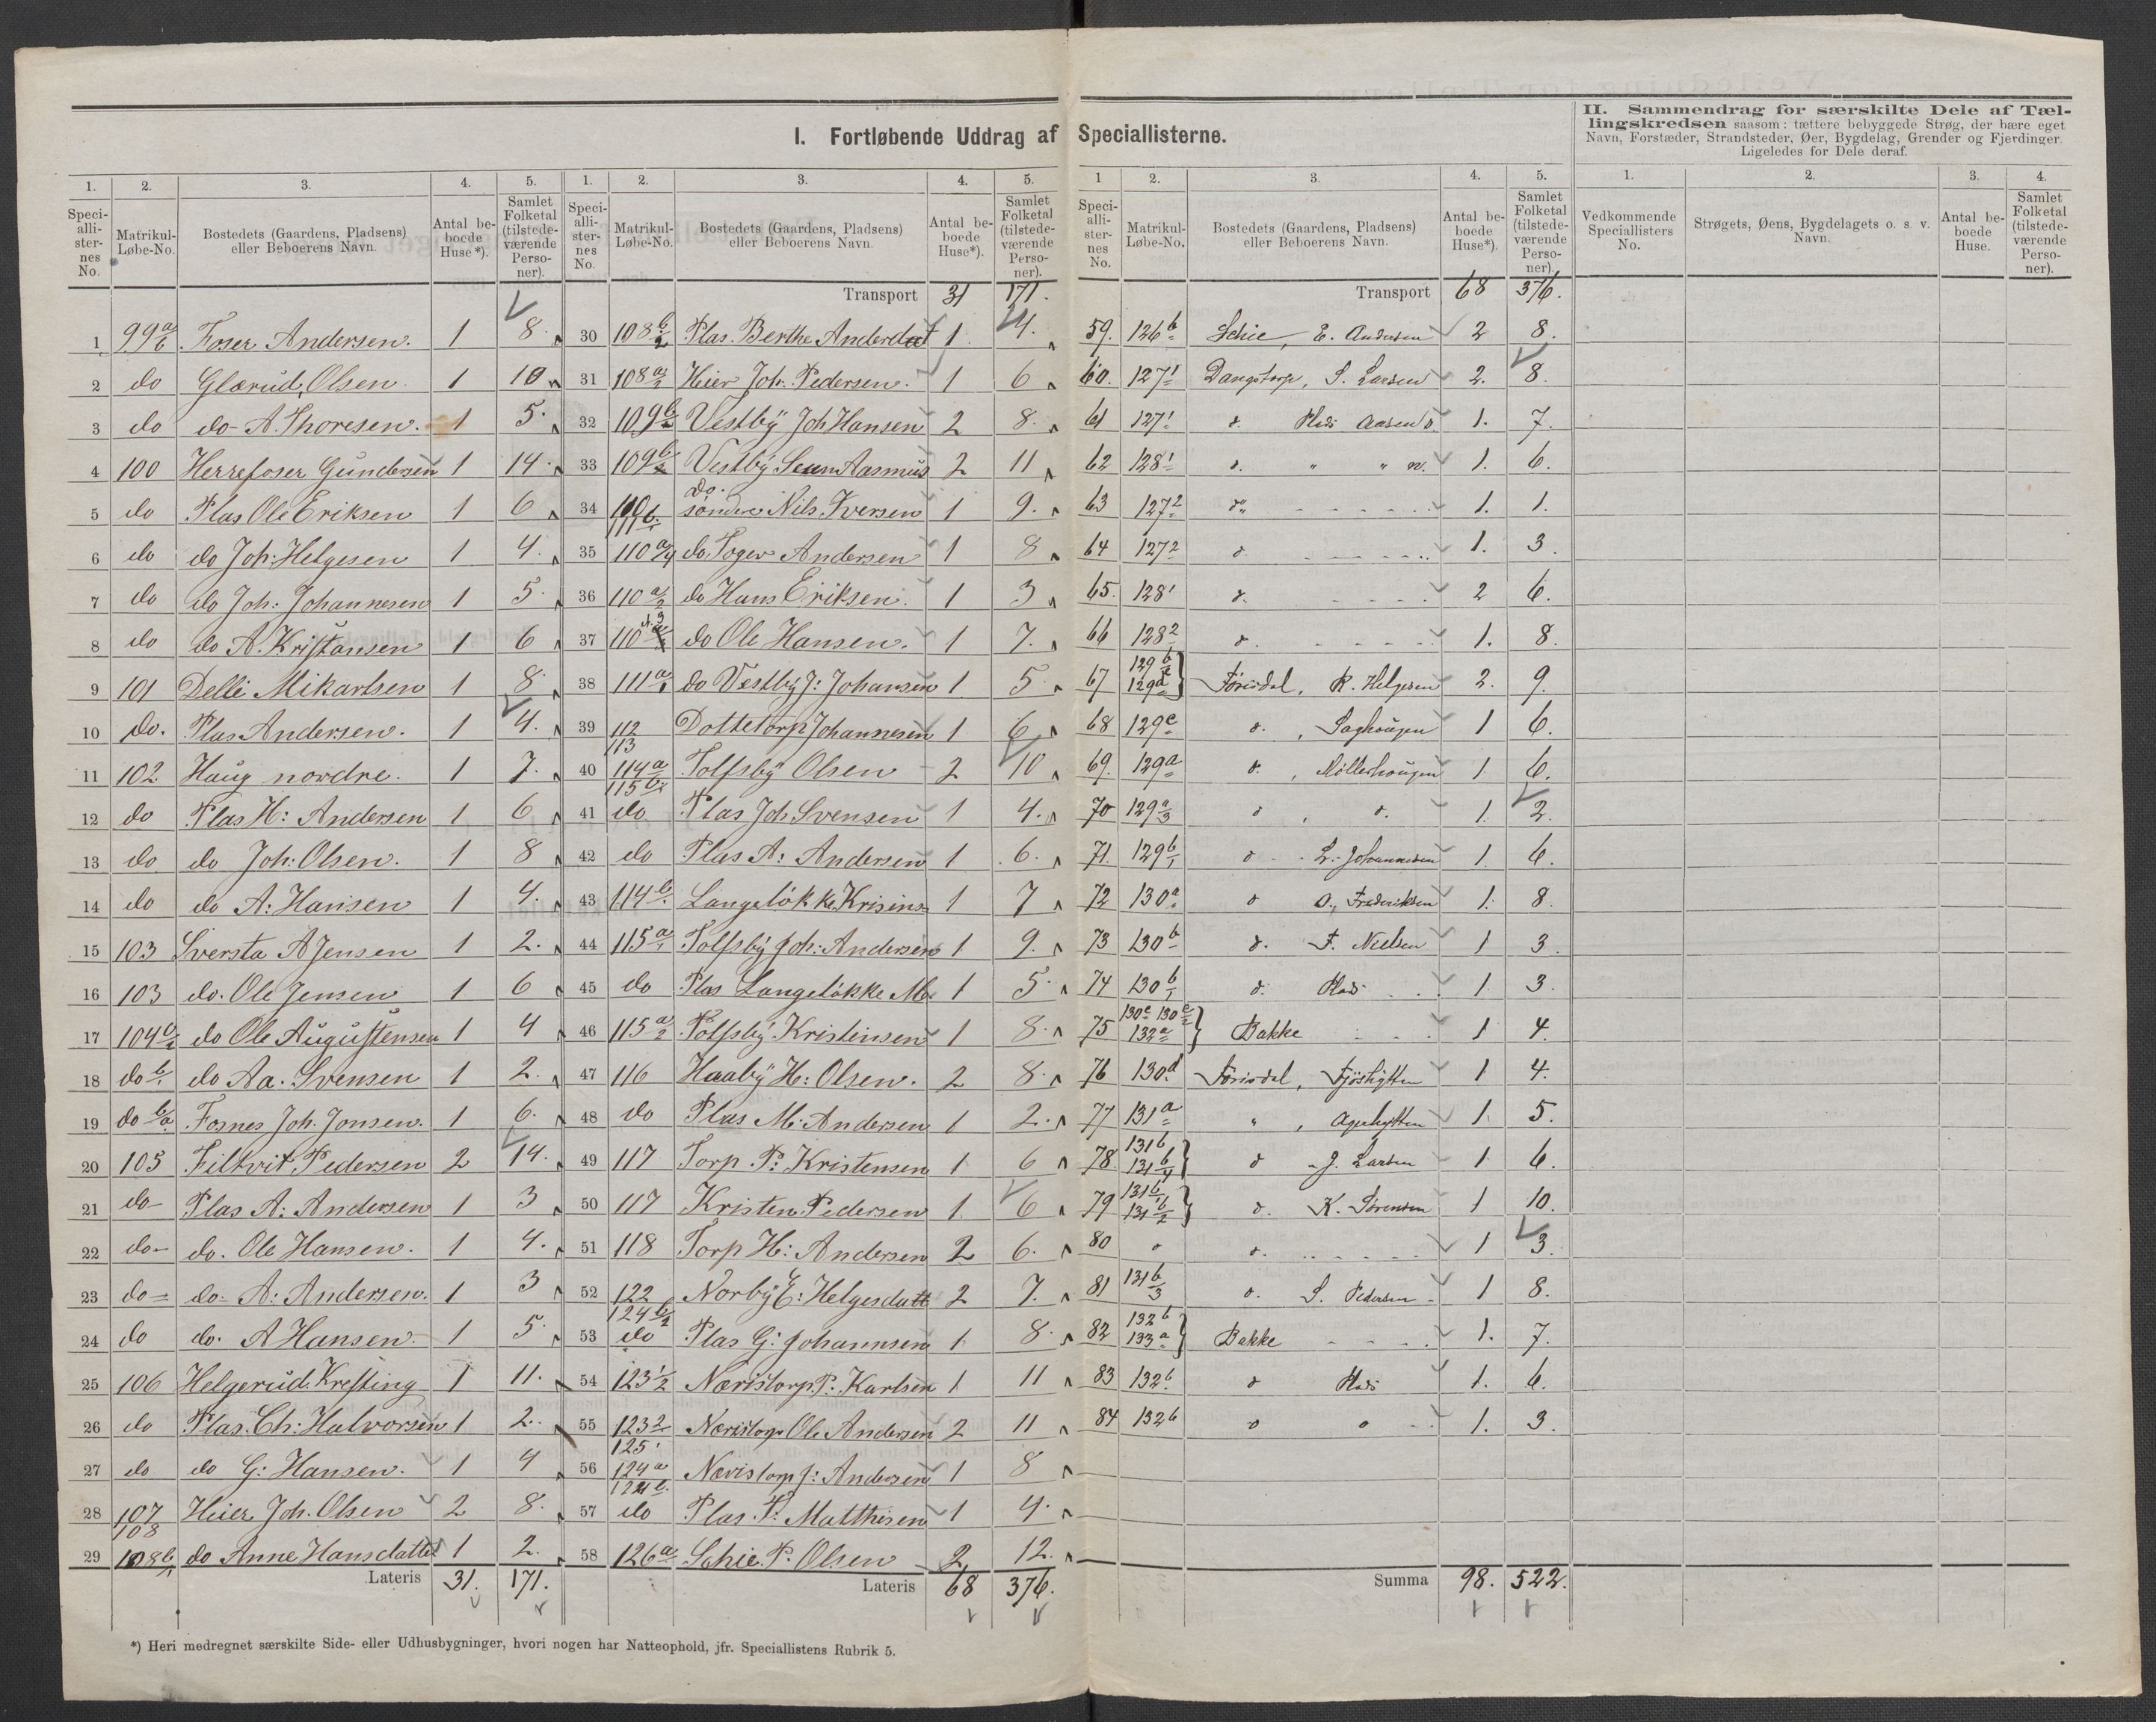 I. Fortløbende Uddrag af Speciallisterne.
II. Sammendrag for særskilte Dele af Tællingskredsen saasom: tættere bebyggede Strøg, der bære eget
Navn, Forstæder, Strandsteder, Øer, Bygdelag, Grender og Fjerdinger.
Ligeledes for Dele deraf.
1. 2. 3. 4. 5.
Speciallisternes No. Matrikul-Løbe-No. Bostedets (Gaardens, Pladsens) eller Beboerens Navn. Antal beboede Huse*). Samlet Folketal (tilstedeværende Personer).
1 99 a/b Foser Andersen. 1 8
2 do Glærud, Olsen 1 10
3 do do A. Thoresen. 1 5.
4 100 Herrefoser Gundersen 1 14
5 do Plas Ole Eriksen 1 6
6 do do Joh: Helgesen 1 4.
7 do do Joh: Johannesen 1 5
8 do do A. Kristansen 1 6
9 101 Delli Mikarlsen 1 8
10 do. Plas Andersen. 1 4.
11 102 Haug nordre. 1 7.
12 do Plas H: Andersen 1 6
13 do do Joh: Olsen. 1 8
14 do do A: Hansen 1 4.
15 103 Sversta A Jensen 1 2.
16 103 do. Ole Jensen 1 6
17 104 do Ole Augustensen 1 4
18 do b/1 do Aa. Svensen 1 2.
19 do b/a Fosnes Joh. Jonsen. 1 6.
20 105 Filtvit Pedersen 2 14.
21 do Plas A: Andersen 1 3
22 do do. Ole Hansen. 1 4.
23 do do A: Andersen. 1 3
24 do do. A Hansen. 1 5
25 106 Helgerud. Kresting 1 11.
26 do Plas. Ch: Halvorsen 1 2.
27 do do G: Hansen. 1 4
28 107 108 Heier Joh. Olsen 2 8.
29 108 b/1 do Anne Hansdatter 1 2.
Lateris 31. 171.
1. 2. 3. 4. 5.
Speciallisternes No. Matrikul-Løbe-No. Bostedets (Gaardens, Pladsens) eller Beboerens Navn. Antal beboede Huse*). Samlet Folketal (tilstedeværende Personer).
Transport 31 171.
30 108 b/2 Plas. Berthe Andersdat 1 4.
31 108 a/1 Heier Joh. Pedersen. 1 6
32 109 b/2 Vestby Joh Hansen 2 8.
33 109 b Vestby Aasmus 2 11
34 do. søndre Nils Iversen 1 9.
35 110 a/4 do Andersen 1 8
36 110 a/2 do Hans Eriksen. 1 3
37 110 do Ole Hansen. 1 7.
38 111 a/1 do Vestby J: Johansen 1 5
39 112 113 Dottetorp Johannesen 1 6
40 114 a Tolfsby Olsen 2 10
41 do Plas Joh Svensen 1 4.
42 do Plas A: Andersen 1 6.
43 114 b. Langeløkke, 1 7
44 115 a/1 Tolfsby Joh: Andersen 1 9.
45 do Plas Langeløkke M. 1 5
46 115 a/2 Tolfsby Kristensen 1 8.
47 116 Haaby H: Olsen. 2 8.
48 do Plas M: Andersen 1 2.
49 117 Torp P: Kristensen 1 6
50 117 Kristen Pedersen 1 6
51 118 Torp H: Andersen 2 6.
52 122 Norby E: Helgesdatt 2 7.
53 124 b/2 do Plas G: Johannsen 1 8.
54 123 1/2 Næristorp P: Karlsen 1 11
55 123 2 Næristorp Ole Andersen 2 11
56 125 1 124 a Næristorp J: Andersen 1 8
57 do Plas P. Matthisen 1 4.
58 126 a Schie P. Olsen 2 12.
Lateris 68 376.
1 2. 3. 4. 5.
Speciallisternes No. Matrikul-Løbe-No. Bostedets (Gaardens, Pladsens) eller Beboerens Navn. Antal beboede Huse*). Samlet Folketal (tilstedeværende Personer).
Transport 68 376.
59. 126 b Schie, E. Andersen 2 8.
60. 127 1 Dangstorp, S. Larsen 2. 8.
61 127 1 d. Plads Aasen ø. 1. 7.
62 128 1 d. " " n. 1. 6.
63 127 2 d" 1. 1.
64 127 2 d 1. 3.
65. 128 1 d. 2 6.
66 128 2 d. 1. 8.
67 129 129 d Førisdal, R. Helgesen 2. 9.
68 129 c d. , Saghougen 1 6.
69. 129 a d. , Møllerhougen 1. 6.
70 129 a/3 d , d. 1. 2.
71. 129 b/1 d L. Johannesen 1. 6.
72 130 a d O. Frederiksen 1. 8.
73 130 b d. F. Nielsen 1 3
74 130 b/1 d. Plads 1. 3.
75 130 c 132 a Bakke 1 4.
76 130 d Førisdal, Fjøshytten 1 4.
77 131 a " , 1. 5.
78. 131 b 131 b/4 d J. Larsen 1. 6.
79 131 b/1 131 b/2 d. K. Sørensen 1 10.
80 " d. 1 3.
81 131 b/3 d. S. Pedersen 1 8.
82 132 b 133 a Bakke 1. 7.
83 132 b d Plads 1. 6.
84 132 b d d 1. 3.
Summa 98. 522.
1. 2. 3. 4.
Vedkommende Speciallisters No. Strøgets, Øens, Bygdelagets o. s. v. Navn. Antal beboede Huse. Samlet Folketal (tilstedeværende Personer).
*) Heri medregnet særskilte Side- eller Udhusbygninger, hvori nogen har Natteophold, jfr. Speciallistens Rubrik 5.